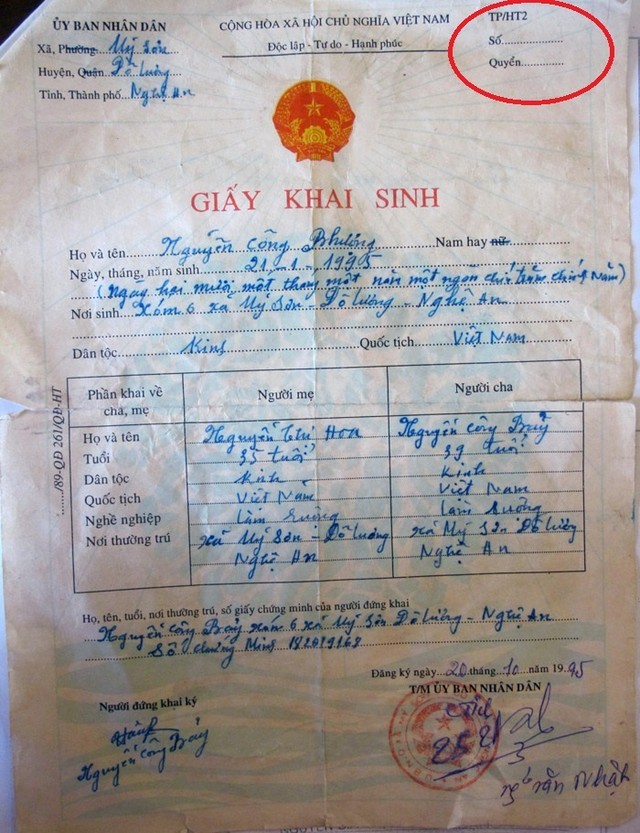 ỦY BAN NHÂN DÂN
Xã, Phường Mỹ Sơn
Huyện, Quận Đô Lương
Tỉnh, Thành phố Nghệ An
CỘNG HÒA XÃ HỘI CHỦ NGHĨA VIỆT NAM
Độc lập - Tự do - Hạnh phúc
TP/HT2
Số
Quyển
GIẤY KHAI SINH
Họ và tên Nguyễn Công Phượng Nam hay nữ
Ngày, tháng, năm sinh 21 - 1 - 1995
(Ngày hai mươi mốt tháng một năm một ngàn chín trăm chín năm)
Nơi sinh Xóm 6 xã Mỹ Sơn - Đô Lương - Nghệ An
Dân tộc Kinh Quốc tịch Việt Nam
Phần khai về cha, mẹ Người mẹ Người cha
Họ và tên Nguyễn Thị Hoa Nguyễn Công Bảy
Tuổi 35 tuổi 39 tuổi
Dân tộc Kinh Kinh
Quốc tịch Việt Nam Việt Nam
Nghề nghiệp Làm ruộng Làm ruộng
Nơi thường trú xã Mỹ Sơn - Đô Lương xã Mỹ Sơn Đô Lương
Nghệ An Nghệ An
/89-QĐ 261/QĐ-HT
Họ, tên, tuổi, nơi thường trú, số giấy chứng minh của người đứng khai
Nguyễn Công Bảy xóm 6 xã Mỹ Sơn Đô Lương - Nghệ An
Số chứng minh 182019168
Đăng ký ngày 20 tháng 10 năm 1995
T/M ỦY BAN NHÂN DÂN
Người đứng khai ký
Nguyễn Công Bảy
Văn Nhật